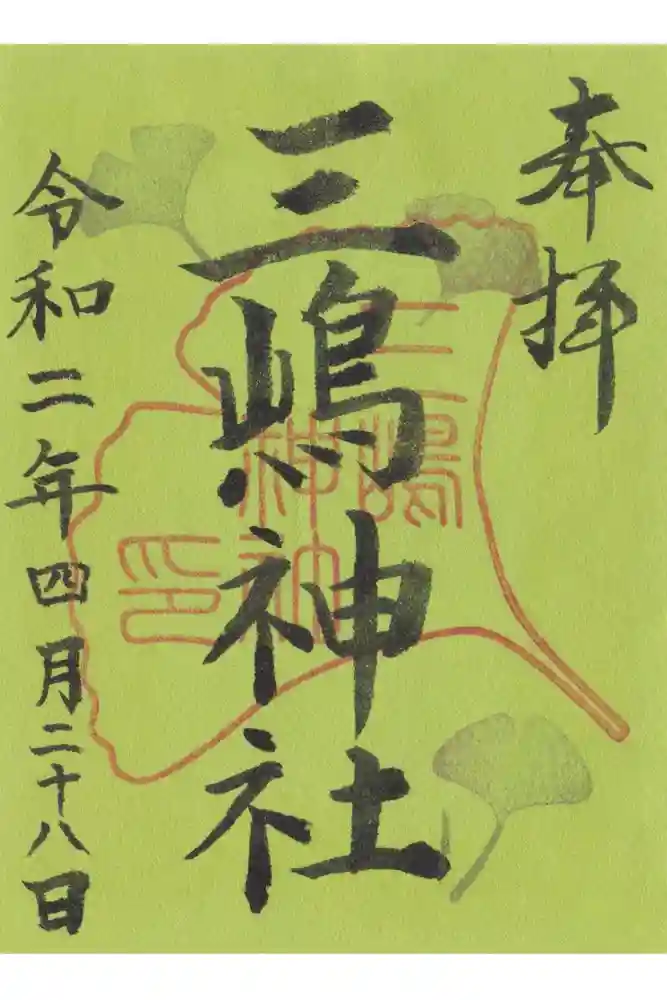 奉拝
三嶋神社
三嶋
神社
印
令和二年四月二十八日